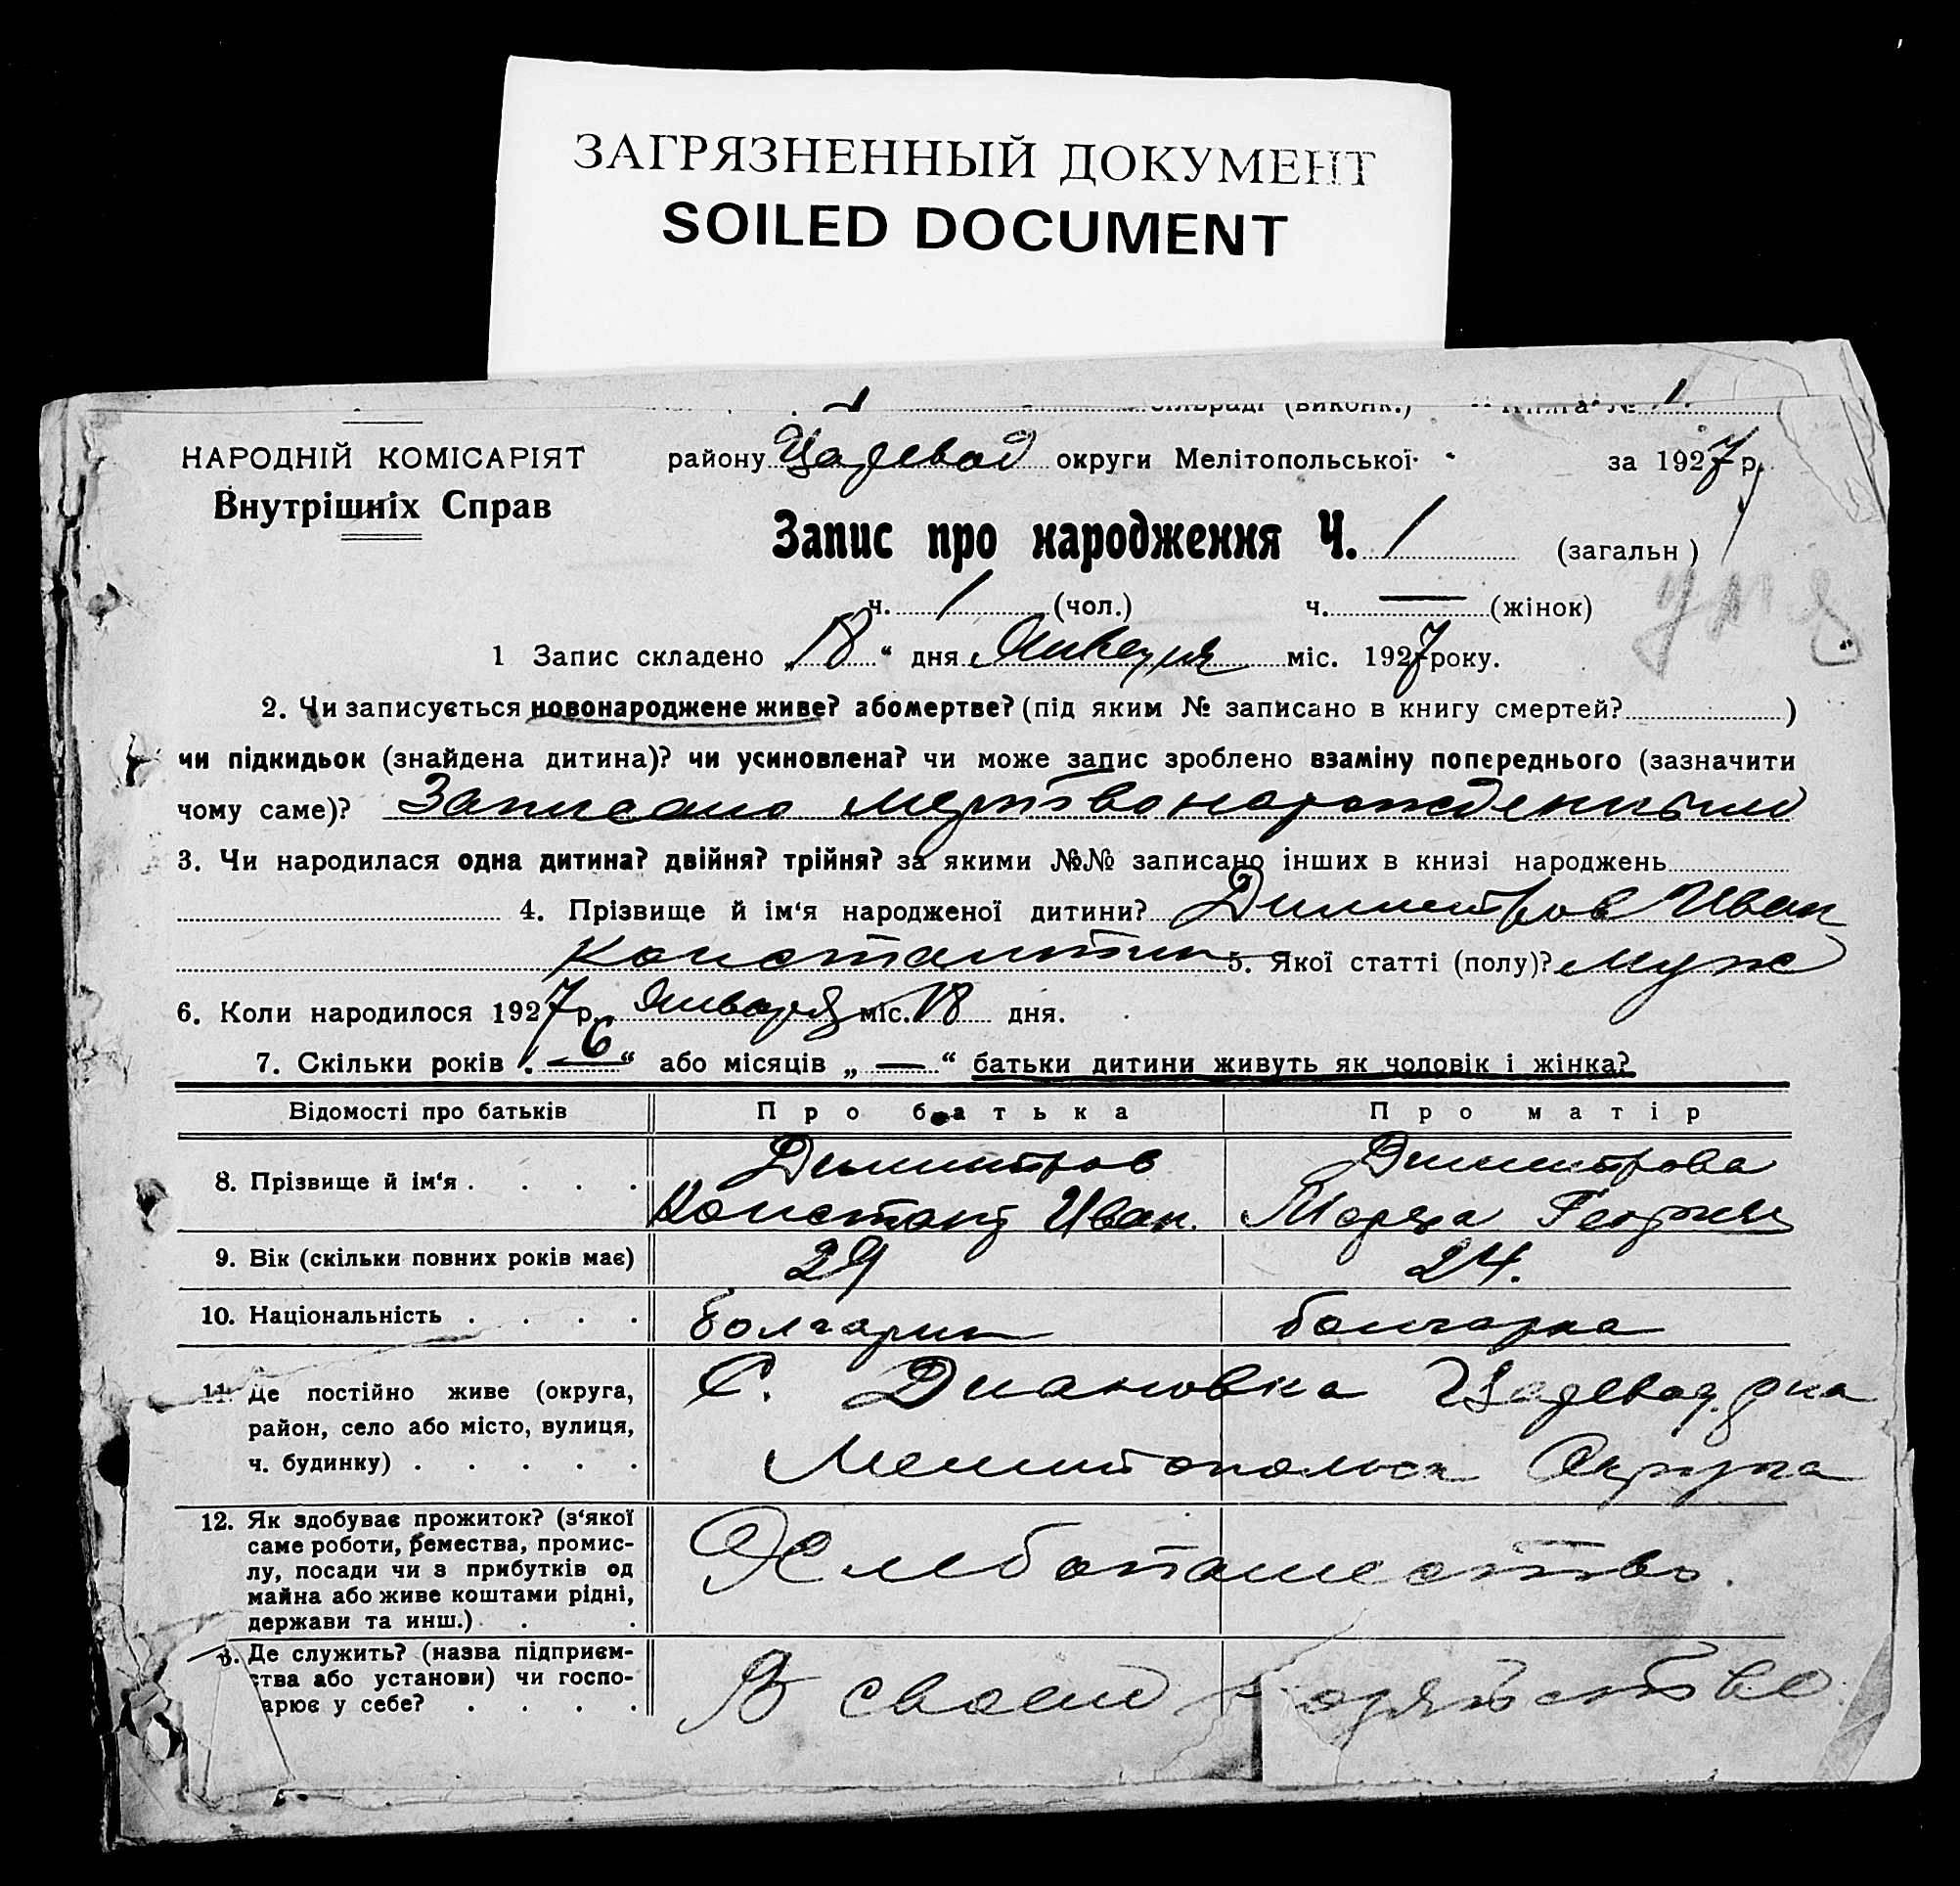 ЗАГРЯЗНЕННЫЙ ДОКУМЕНТ
SOILED DOCUMENT
сільраді (виконк.) Книга № 1.
НАРОДНІЙ КОМІСАРІЯТ
Внутрішніх Справ
району Царевод округи Мелітопольської за 1927 р.
Запис про народження Ч. 1 (загальн)
ч. 1 (чол.) ч. — (жінок)
1 Запис складено „18“ дня Января міс. 1927 року.
2. Чи записується новонароджене живе? або мертве? (під яким № записано в книгу смертей? )
чи підкидьок (знайдена дитина)? чи усиновлена? чи може запис зроблено взаміну попереднього (зазначити
чому саме)? Записано мертворожденным
3. Чи народилася одна дитина? двійня? трійня? за якими №№ записано інших в книзі народжень
4. Прізвище й ім‘я народженої дитини? Димитров Иван
Константин 5. Якої статті (полу)? муж
6. Коли народилося 1927 р. Января міс. 18 дня.
7. Скільки років „6“ або місяців „—“ батьки дитини живуть як чоловік і жінка?
Відомості про батьків Про батька Про матір
8. Прізвище й ім‘я . . . . Димитров Димитрова
Констант Иван. Георгиев
9. Вік (скільки повних років має) 29 24.
10. Національність . . . . болгарин болгарка
11. Де постійно живе (округа, район, село або місто, вулиця, ч. будинку) . . . . . С. Диановка Царевод. рна
Мелитопольск Округа
12. Як здобуває прожиток? (з‘якої саме роботи, ремества, промислу, посади чи з прибутків од майна або живе коштами рідні, держави та инш.) . . . Хлебопашество.
Де служить? (назва підприєм-
ства або установи) чи госпо-
арює у себе? . . . . В своем